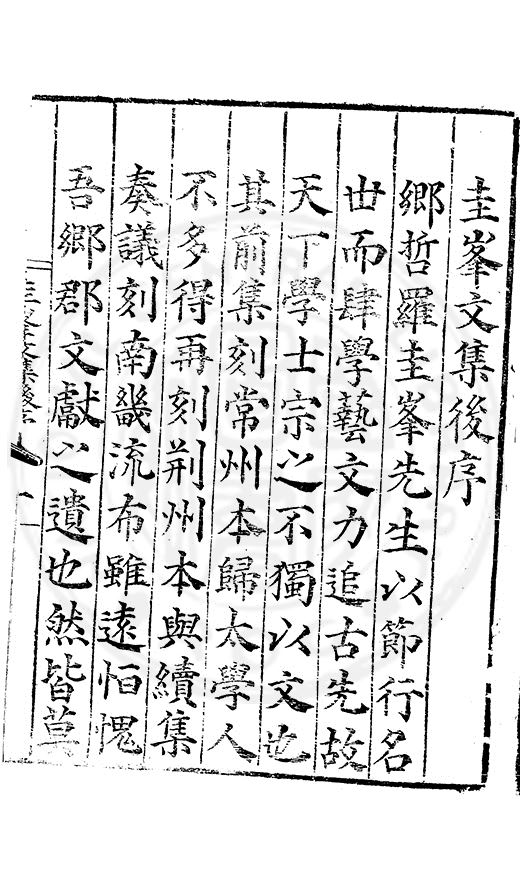 圭峯文集後序
鄉哲羅圭峯先生以節行名
世而肆學藝文力追古先故
天下學士宗之不獨以文也
其前集刻常州本歸太學人
不多得再刻荊州本與續集
奏議刻南畿流布雖遠怕愧
吾鄉郡文獻之遺也然皆草
圭峯文集後序 一